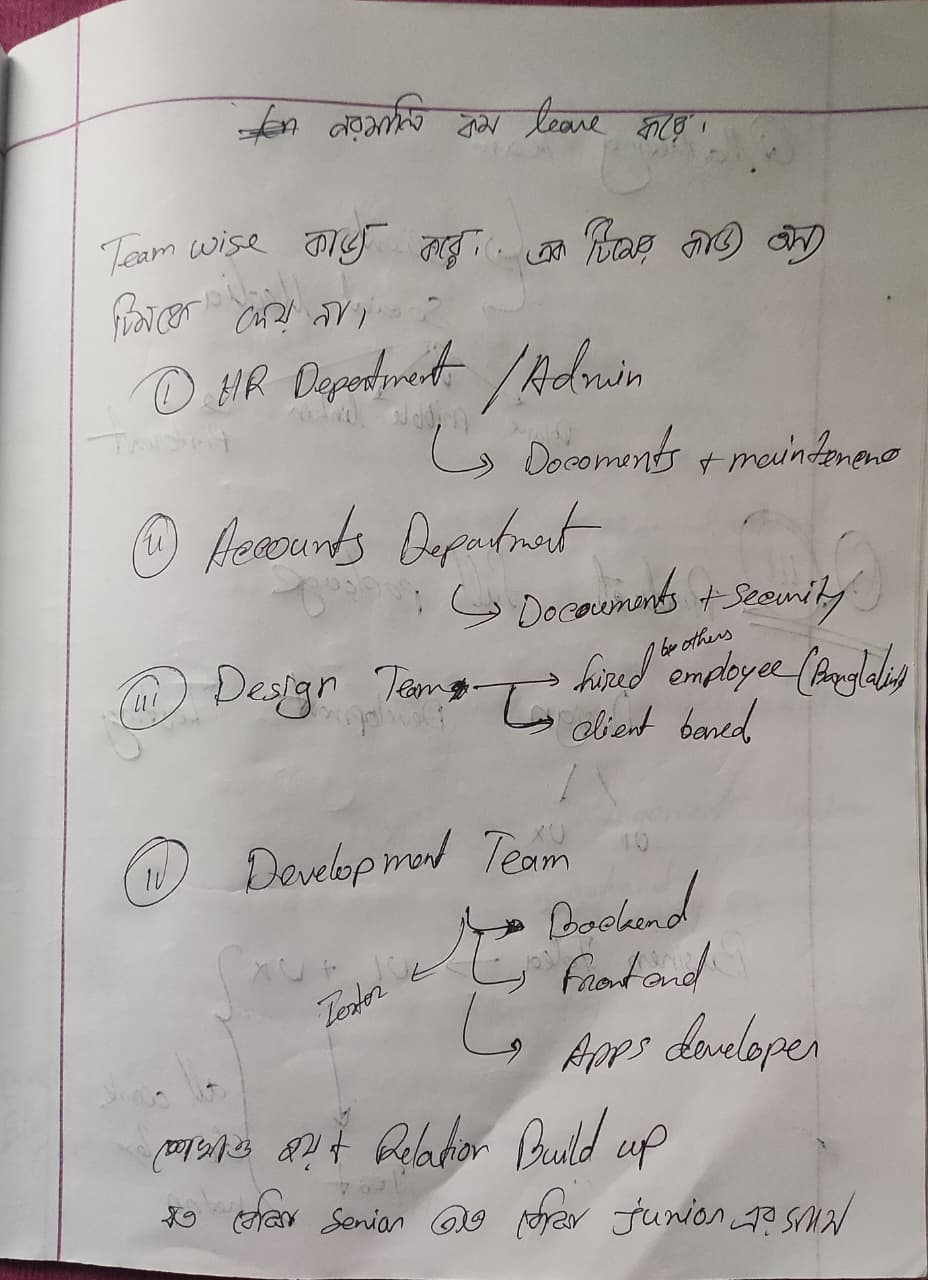 নরমালি কম leave করে।
Team wise কাজ করে। এক টিমের কাজ অন্য
টিমকে দেয় না।
(i) HR Department / Admin
↳ Docoments + maintenenc
(ii) Accounts Department
↳ Docouments + Security
by others
(iii) Design Team → hired employee (Banglalink)
↳ client based
(iv) Development Team
→ Backend
↳ Frontend
Tester
↳ Apps developer
শেখাও হয় + Relation Build up
যত বেশি Senior তত বেশি junior এর সাথে